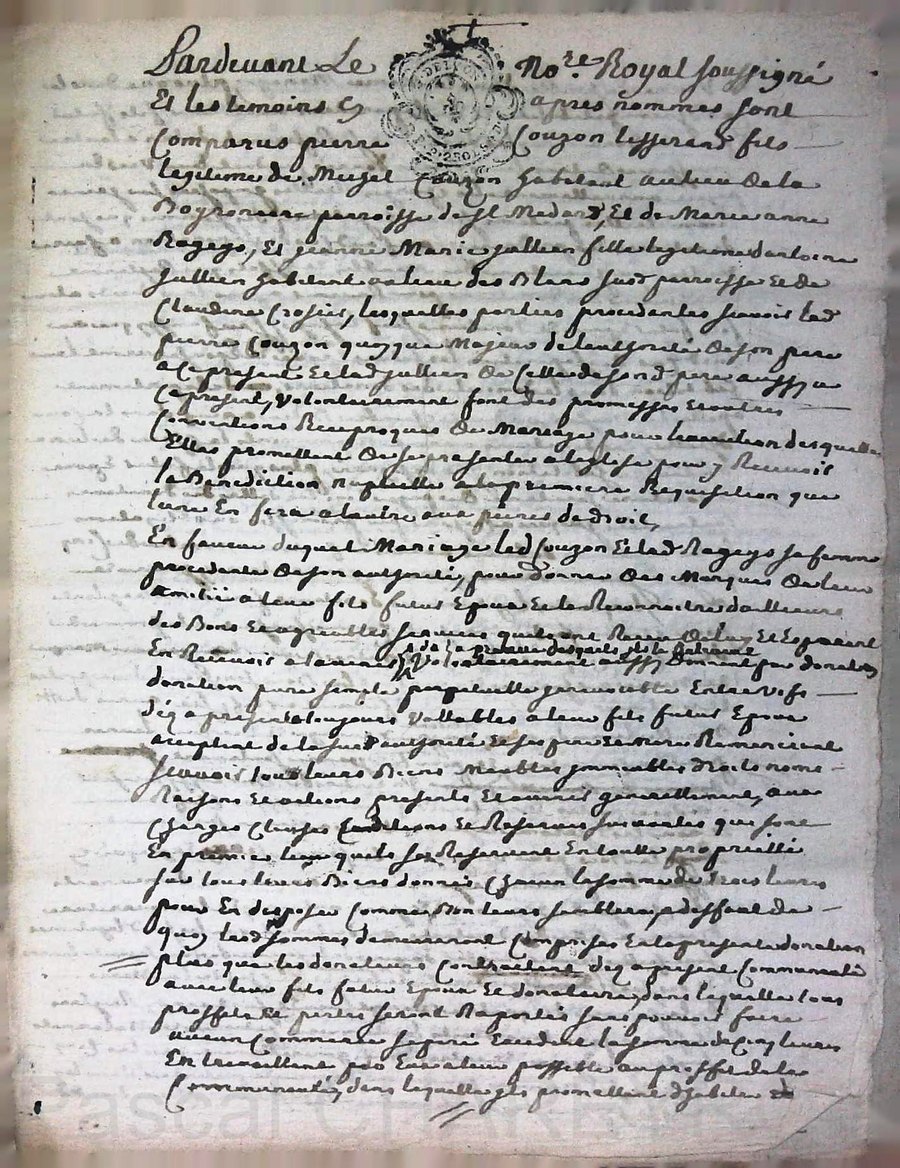 Pardevant Le No.re Royal soussigné
Et les temoins cy apres nommes sont
Comparus pierre Couzon tisserand fils
legitime de Michel Couzon habitant au lieu de la
parroisse de St Medard, Et de Marie anne
Rageys, Et jeanne Marie jullien fille legitime dantoine
jullien habitant au lieu des Blans susd parroisse et de
Claudine Crosier, lesquelles parties procedantes scavoir led
pierre Couzon quoyque Majeur de lauthorité de son pere
a Ce present Et lad jullien de Celle de sond pere aussy a
Ce present, Volontairement font des promesses
Conventions Reciproques de Mariage pour desquelles
Elles promettent de se presenter a leglise pour y Recevoir
la Benediction nuptielle a la premiere Requisition que
lune En fera a lautre aux peines de droit,
En faveur duquel Mariage led Couzon Et lad Rageys sa femme
procedante de son authorité, pour donner des Marques de leur
amitié a leur fils futur Epoux Et le Reconnoitre dailleurs
des Bons Et agreables services quils ont Receu de luy Et Esperent
de la preuve desquels
En Recevoir a lavenir Volontairement aussy donnent par donation
donation pure simple perpetuelle jrrevocable Entre vifs
dez a present Et toujours Vallables a leur fils futur Epoux
acceptant de la susd authorité Et ses pere Et Mere Remerciant
scavoir tous leurs Biens Meubles jmmeubles droits noms
Raisons Et actions presents Et avenir generallement, aux
Charges Clauses Conditions Et Reserves suivantes qui sont
En premier lieu quils se Reservent En toutte proprietté
sur tous leurs Biens donnés Chacun la somme de trois livres
pour En disposer Comme Bon leurs semblera, a deffaut de
quoy lesd sommes demeureront Comprises En la presente donation
plus que les donateurs Contractent dez a present Communauté
avec leur fils futur Epoux Et donataire, dans laquelle tous
proffits Et pertes seront Raportés sans pouvoir faire
aucun Commerce separé Excedant la somme de Cinq livres
En travaillant par Eux a leur possible au proffit de la
Communauté, dans laquelle jls promettent dhabiter Et